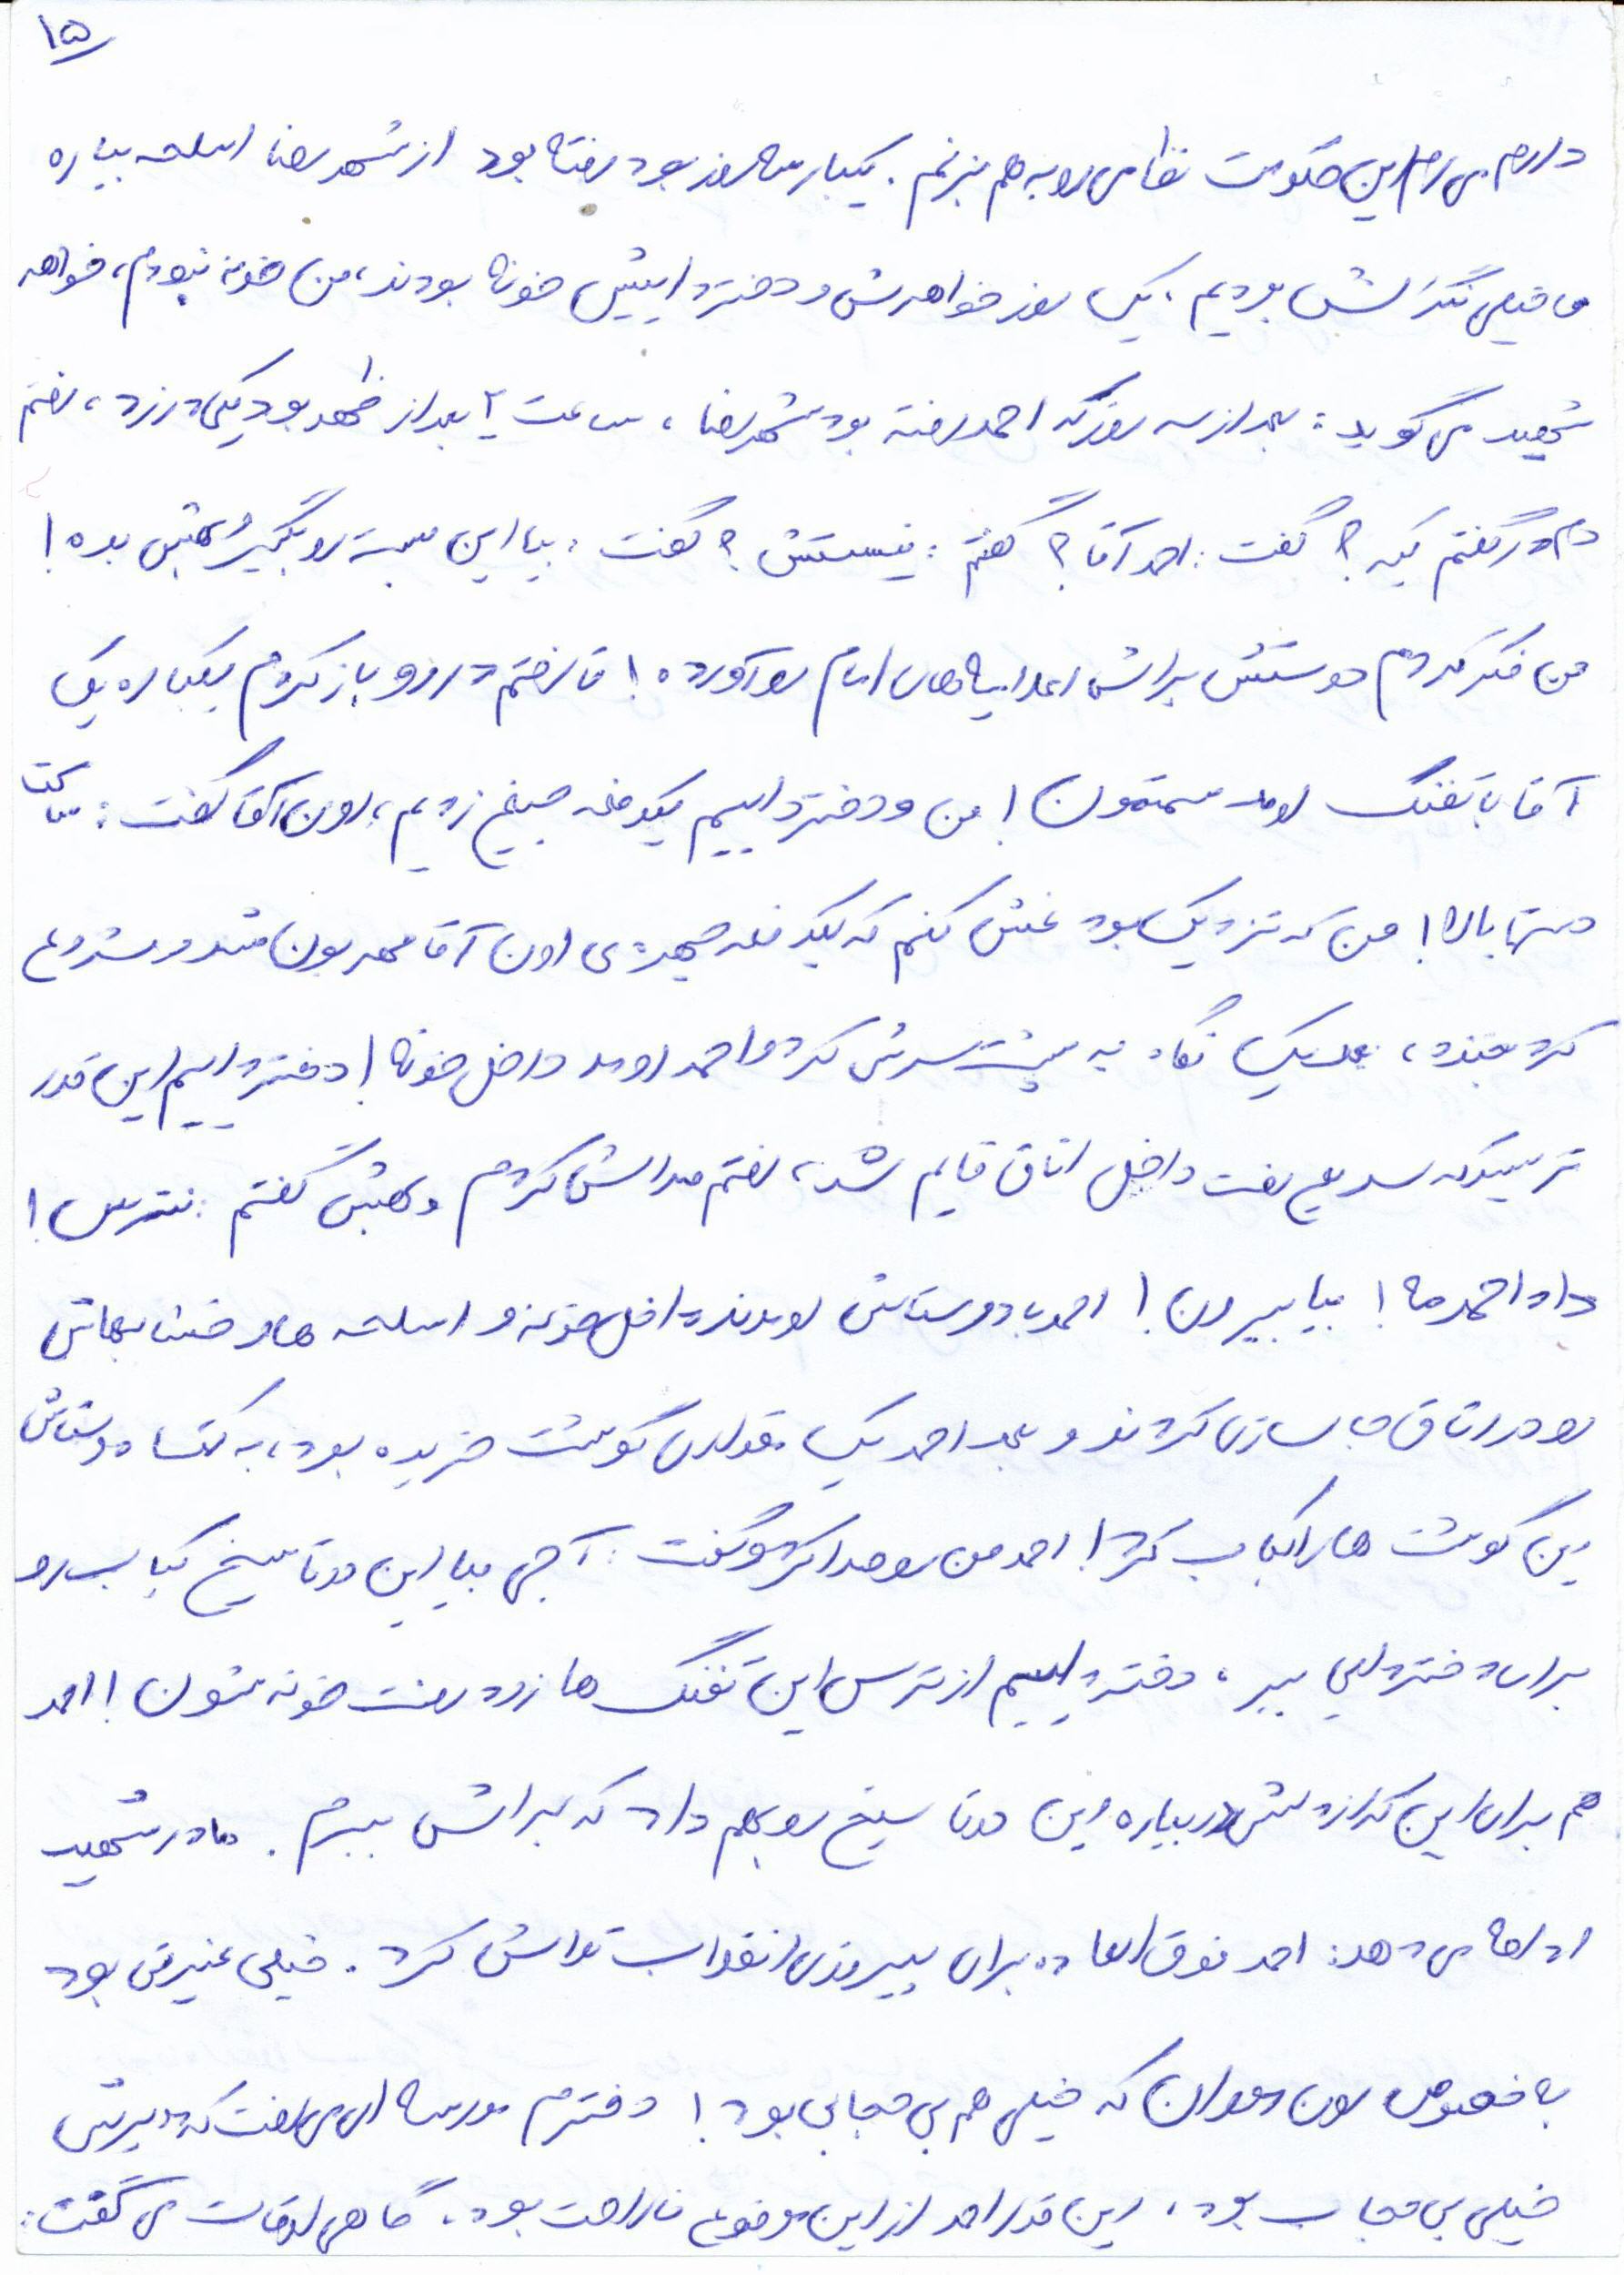 ۱۵
دارم می رم این حکومت نظامی رو به هم بزنم. یکبار سه روز بود رفته بود از شهرضا اسلحه بیاره
ما خیلی نگرانش بودیم، یک روز خواهرش و دختر داییش خونه بودند، من خونه نبودم، خواهر
شهید می گوید: بعد از سه روز که احمد رفته بود شهرضا، ساعت ۲ بعد از ظهر بود یکی در زد، رفتم
دم در گفتم کیه؟ گفت: احمد آقا؟ گفتم: نیستش؟ گفت: بیا این بسته رو بگیر و بهش بده!
من فکر کردم دوستش براش اعلامیه های امام رو آورده! تا رفتم در رو باز کردم یکباره یک
آقا با تفنگ اومد سمتمون! من و دختر داییم یکدفعه جیغ زدیم، اون آقا گفت: ساکت
دستها بالا! من که نزدیک بود غش کنم که یکدفعه چهره ی اون آقا مهربون شد و شروع
کرد خنده، بعد یک نگاه به پشت سرش کرد و احمد اومد داخل خونه! دختر داییم این قدر
ترسید که سریع رفت داخل اتاق قایم شد، رفتم صداش کردم و بهش گفتم: نترس!
داد احمد ما! بیا بیرون! احمد با دوستاش اومدند داخل خونه و اسلحه ها و خشابهاش
رو در اتاق جاسازی کردند و بعد احمد یک مقداری گوشت خریده بود، به کمک دوستاش
این گوشت ها را کباب کرد! احمد من رو صدا کرد و گفت: آجی بیا این دوتا سیخ کباب رو
برای دختر دایی ببر، دختر داییم از ترس این تفنگ ها زود رفت خونه شون! احمد
هم برای این که از دلش در بیاره این دوتا سیخ رو بهم داد که براش ببرم. مادر شهید
ادامه می دهد: احمد فوق العاده برای پیروزی انقلاب تلاش کرد. خیلی غیرتی بود
به خصوص اون دوران که خیلی هم بی حجابی بود! دخترم مدرسه ای می رفت که دبیرش
خیلی بی حجاب بود، این قدر احمد از این موضوع ناراحت بود، گاهی اوقات می گفت: